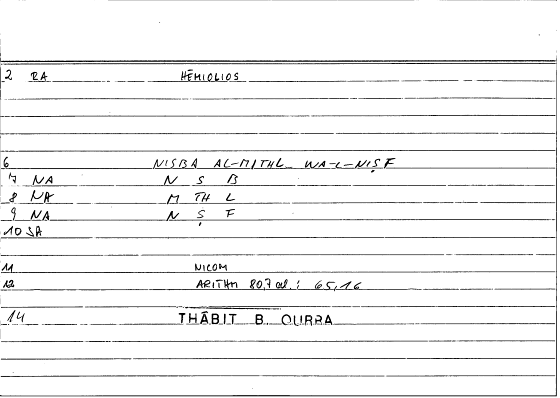 2 RA HĒMIOLIOS
6 NISBA AL-MITHL WA-L-NIṢF
7 NA N S B
8 NA M TH L
9 NA N Ṣ F
10 SA
11 NICOM
12 ARITHM 80,7 al.: 65,16
14 THĀBIT B QURRA